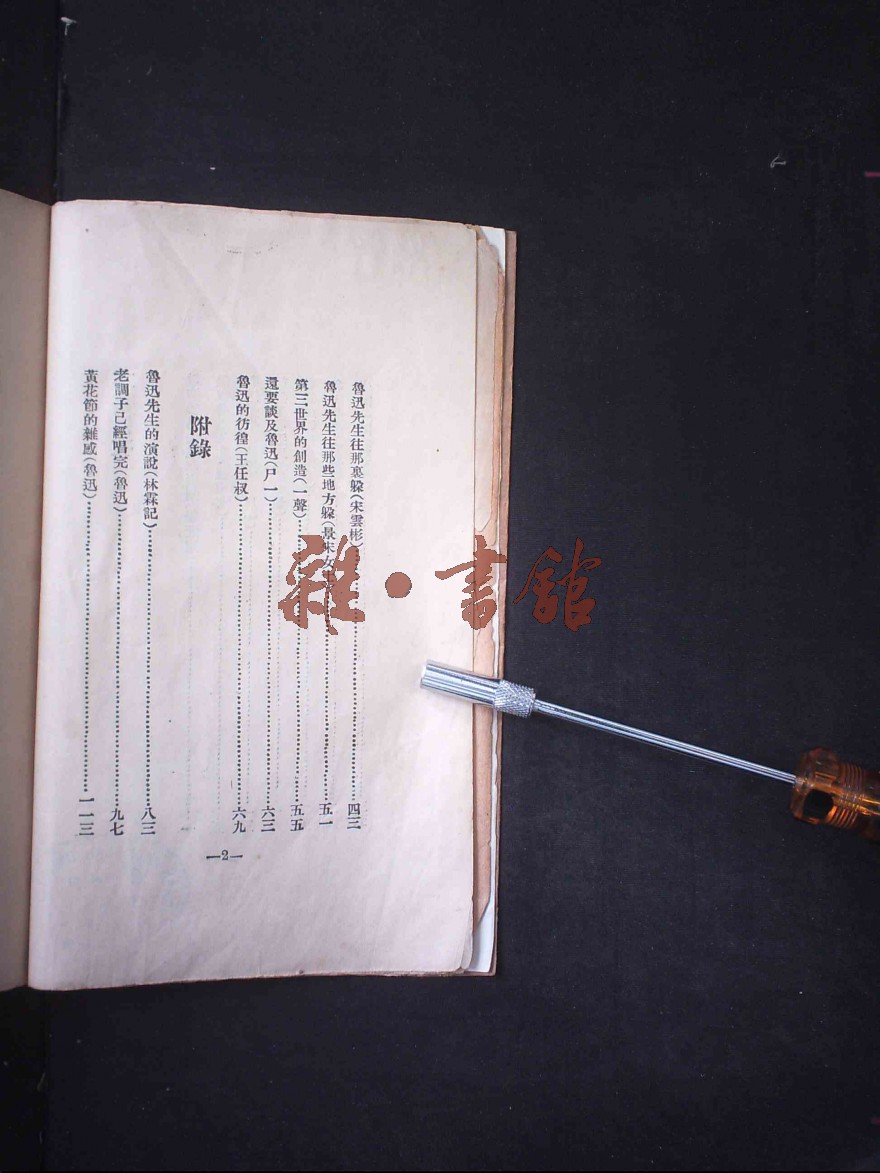 魯迅先生往那裏躱(宋雲彬)…………四三
魯迅先生往那些地方躱(景宋女士)…………五一
第三世界的創造(一聲)…………五五
還要談及魯迅(尸一)…………六三
魯迅的彷徨(王任叔)…………六九
附錄
魯迅先生的演說(林霖記)…………八三
老調子已經唱完(魯迅)…………九七
黃花節的雜感(魯迅)…………一一三
—2—
雜·書館